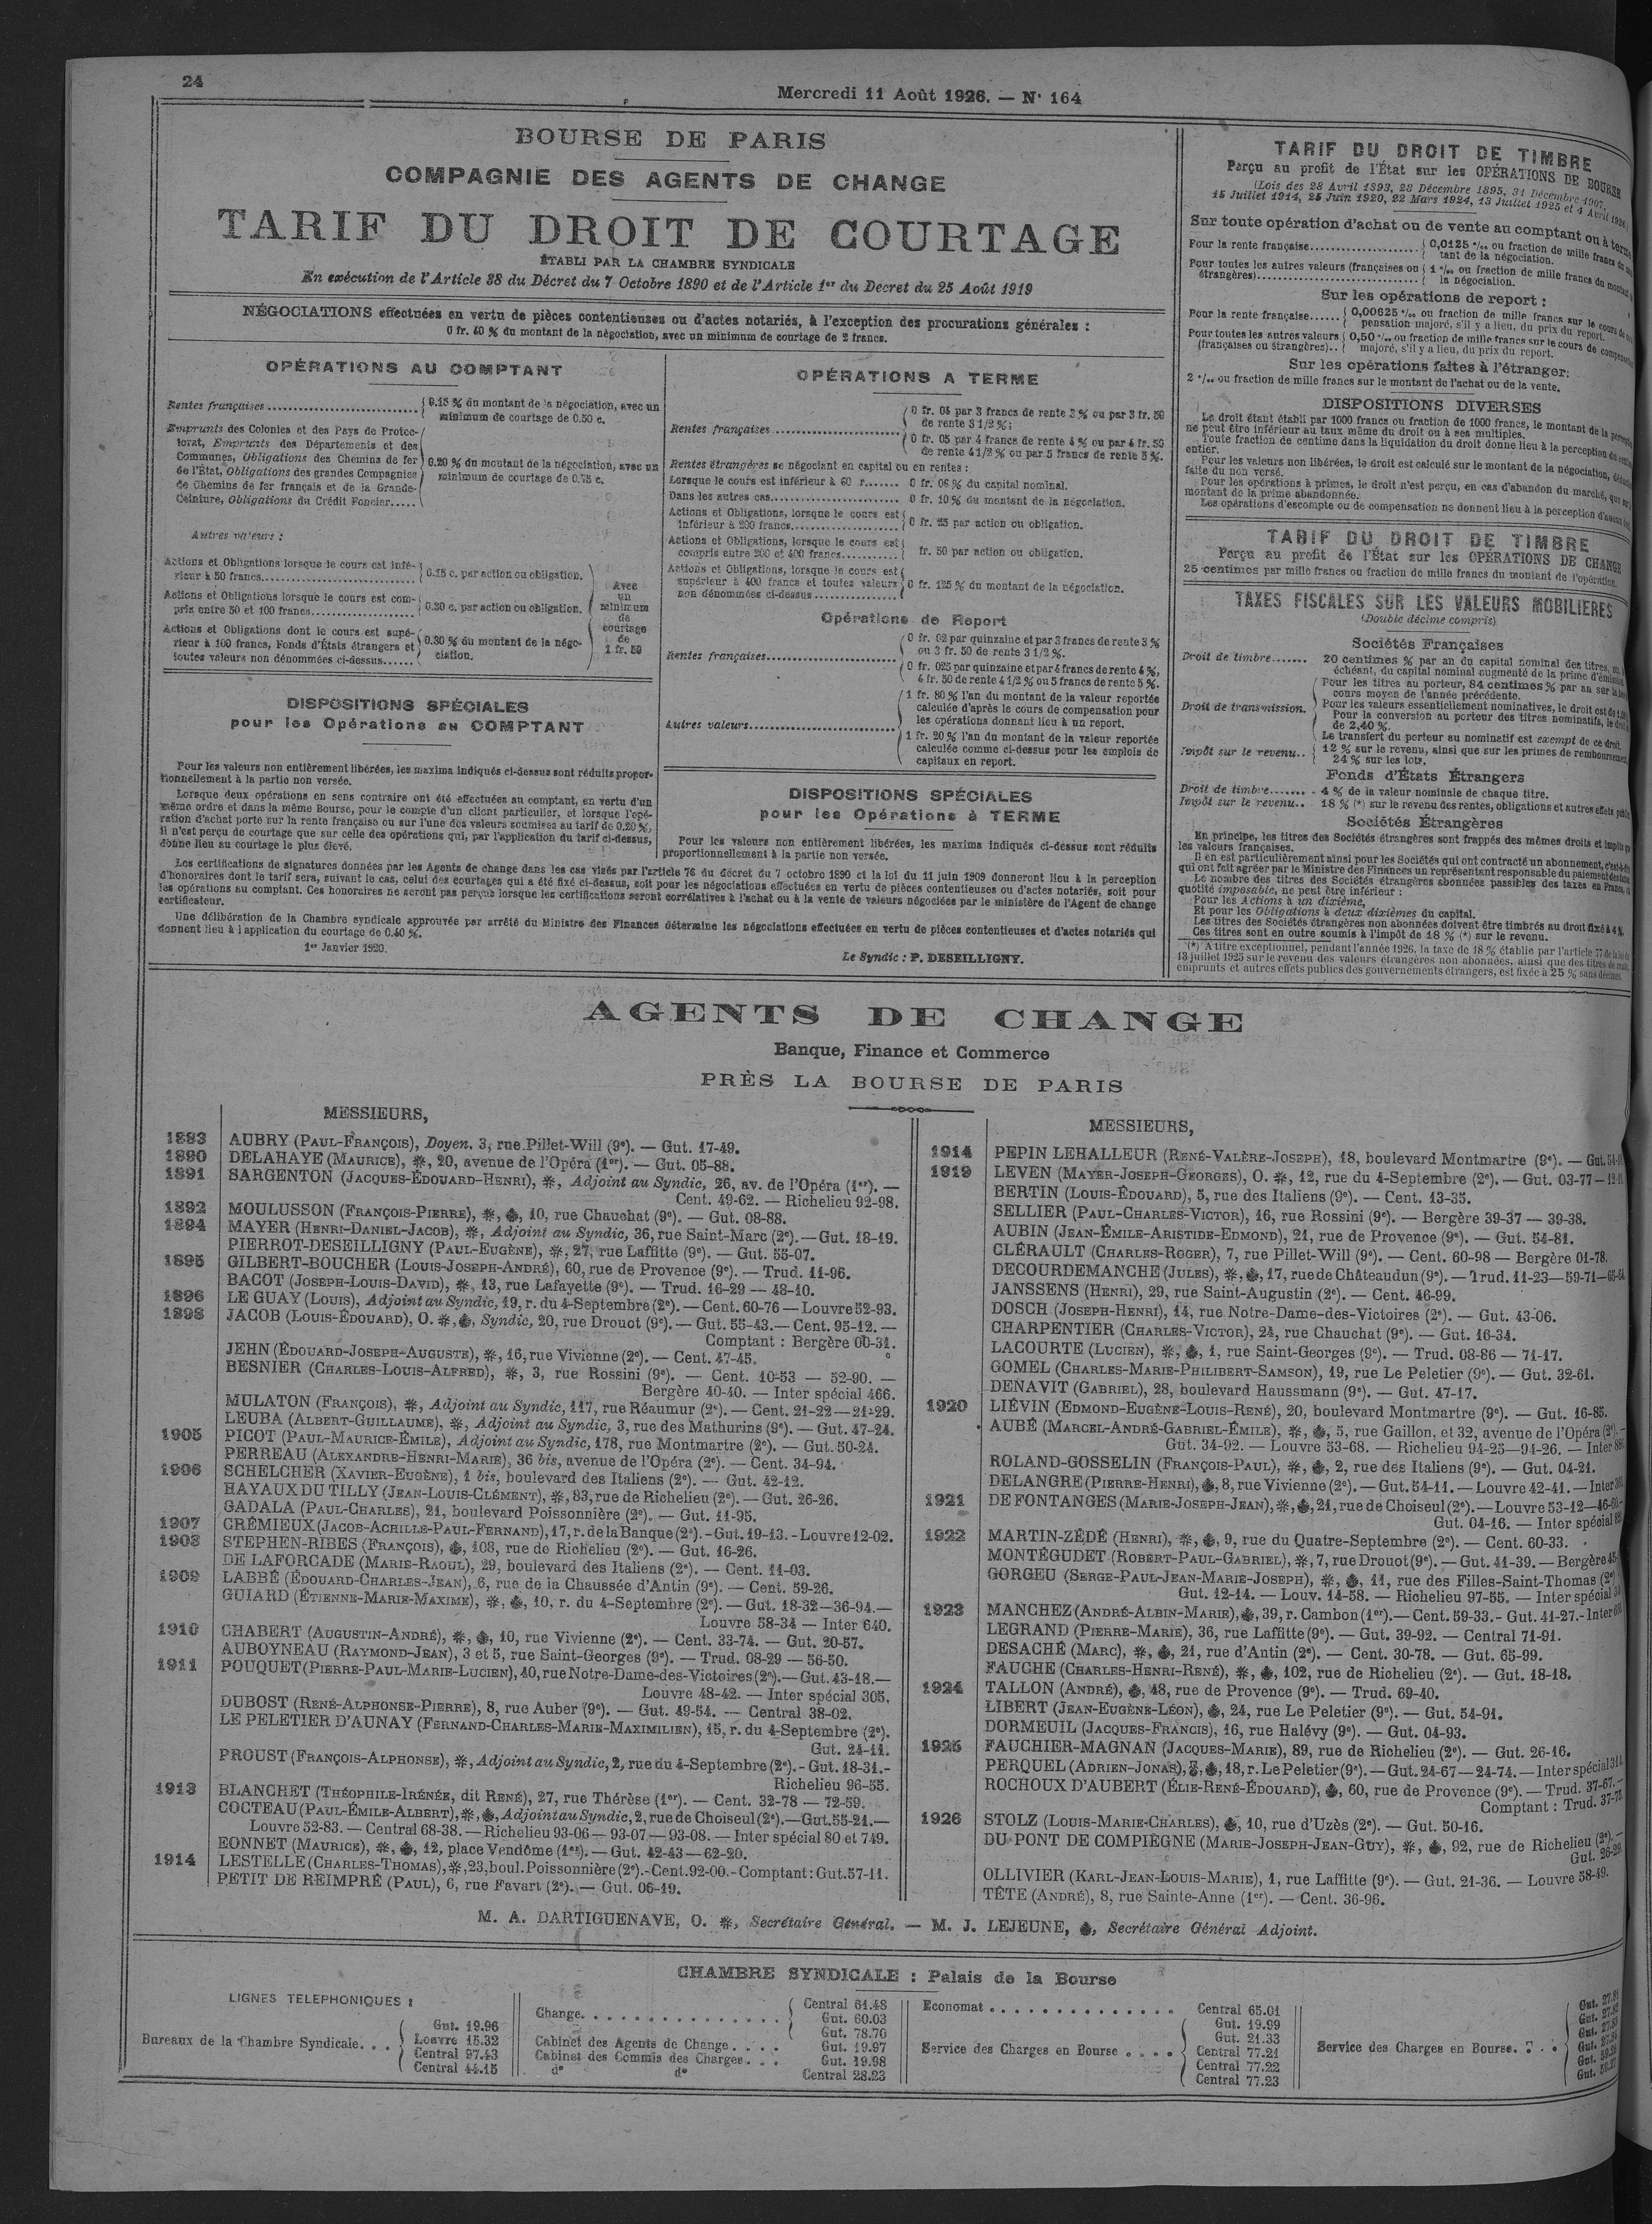 24
Mercredi 11 Août 1926. — N° 164
BOURSE DE PARIS
COMPAGNIE DES AGENTS DE CHANGE
TARIF DU DROIT DE COURTAGE
ÉTABLI PAR LA CHAMBRE SYNDICALE
En exécution de l'Article 38 du Décret du 7 Octobre 1890 et de l'Article 1er du Décret du 25 Août 1919
NÉGOCIATIONS effectuées en vertu de pièces contentieuses ou d'actes notariés, à l'exception des procurations générales :
0 fr. 40 % du montant de la négociation, avec un minimum de courtage de 2 francs.
OPÉRATIONS AU COMPTANT
Rentes françaises ........ 0.15 % du montant de la négociation, avec un
minimum de courtage de 0.50 c.
Emprunts des Colonies et des Pays de Protec-
torat, Emprunts des Départements et des
Communes, Obligations des Chemins de fer
de l'État, Obligations des grandes Compagnies
de Chemins de fer français et de la Grande-
Ceinture, Obligations du Crédit Foncier.....
0.20 % du montant de la négociation, avec un
minimum de courtage de 0.75 c.
Autres valeurs :
Actions et Obligations lorsque le cours est infé-
rieur à 50 francs........ 0.15 c. par action ou obligation.
Actions et Obligations lorsque le cours est com-
pris entre 50 et 100 francs........ 0.30 c. par action ou obligation.
Actions et Obligations dont le cours est supé-
rieur à 100 francs, Fonds d'États étrangers et
toutes valeurs non dénommées ci-dessus......
0.30 % du montant de la négo-
ciation.
Avec
un
minimum
de
courtage
de
1 fr. 50
DISPOSITIONS SPÉCIALES
pour les Opérations au COMPTANT
Pour les valeurs non entièrement libérées, les maxima indiqués ci-dessus sont réduits propor-
tionnellement à la partie non versée.
Lorsque deux opérations en sens contraire ont été effectuées au comptant, en vertu d'un
même ordre et dans la même Bourse, pour le compte d'un client particulier, et lorsque l'opé-
ration d'achat porte sur la rente française ou sur l'une des valeurs soumises au tarif de 0.20 %,
il n'est perçu de courtage que sur celle des opérations qui, par l'application du tarif ci-dessus,
donne lieu au courtage le plus élevé.
OPÉRATIONS A TERME
Rentes françaises ........ 0 fr. 05 par 3 francs de rente 3 % ou par 3 fr. 50
de rente 3 1/2 %;
0 fr. 05 par 4 francs de rente 4 % ou par 4 fr. 50
de rente 4 1/2 % ou par 5 francs de rente 5 %.
Rentes étrangères se négociant en capital ou en rentes :
Lorsque le cours est inférieur à 60 ....... 0 fr. 06 % du capital nominal.
Dans les autres cas........ 0 fr. 10 % du montant de la négociation.
Actions et Obligations, lorsque le cours est
inférieur à 200 francs........ 0 fr. 25 par action ou obligation.
Actions et Obligations, lorsque le cours est
compris entre 200 et 400 francs........ fr. 50 par action ou obligation.
Actions et Obligations, lorsque le cours est
supérieur à 400 francs et toutes valeurs
non dénommées ci-dessus ........ 0 fr. 125 % du montant de la négociation.
Opérations de Report
Rentes françaises........ 0 fr. 02 par quinzaine et par 3 francs de rente 3 %
ou 3 fr. 50 de rente 3 1/2 %.
0 fr. 025 par quinzaine et par 4 francs de rente 4 %,
4 fr. 50 de rente 4 1/2 % ou 5 francs de rente 5 %.
Autres valeurs........ 1 fr. 80 % l'an du montant de la valeur reportée
calculée d'après le cours de compensation pour
les opérations donnant lieu à un report.
1 fr. 20 % l'an du montant de la valeur reportée
calculée comme ci-dessus pour les emplois de
capitaux en report.
DISPOSITIONS SPÉCIALES
pour les Opérations à TERME
Pour les valeurs non entièrement libérées, les maxima indiqués ci-dessus sont réduits
proportionnellement à la partie non versée.
Les certifications de signatures données par les Agents de change dans les cas visés par l'article 76 du décret du 7 octobre 1890 et la loi du 11 juin 1909 donneront lieu à la perception
d'honoraires dont le tarif sera, suivant le cas, celui des courtages qui a été fixé ci-dessus, soit pour les négociations effectuées en vertu de pièces contentieuses ou d'actes notariés, soit pour
les opérations au comptant. Ces honoraires ne seront pas perçus lorsque les certifications seront corrélatives à l'achat ou à la vente de valeurs négociées par le ministère de l'Agent de change
certificateur.
Une délibération de la Chambre syndicale approuvée par arrêté du Ministre des Finances détermine les négociations effectuées en vertu de pièces contentieuses et d'actes notariés qui
donnent lieu à l'application du courtage de 0.40 %.
1er Janvier 1920.
Le Syndic : P. DESEILLIGNY.
TARIF DU DROIT DE TIMBRE
Perçu au profit de l'État sur les OPÉRATIONS DE BOURSE
(Lois des 28 Avril 1893, 28 Décembre 1895, 31 Décembre 1907,
15 Juillet 1914, 25 Juin 1920, 22 Mars 1924, 13 Juillet 1925 et 4 Avril 1926)
Sur toute opération d'achat ou de vente au comptant ou à terme
Pour la rente française........ 0,0125 °/oo ou fraction de mille francs du
tant de la négociation.
Pour toutes les autres valeurs (françaises ou
étrangères)........ 1 °/oo ou fraction de mille francs du montant
la négociation.
Sur les opérations de report :
Pour la rente française...... 0,00625 °/oo ou fraction de mille francs sur le cours de
pensation majoré, s'il y a lieu, du prix du report.
Pour toutes les autres valeurs
(françaises ou étrangères).. 0,50 °/oo ou fraction de mille francs sur le cours de compensation
majoré, s'il y a lieu, du prix du report.
Sur les opérations faites à l'étranger:
2 °/oo ou fraction de mille francs sur le montant de l'achat ou de la vente.
DISPOSITIONS DIVERSES
Le droit étant établi par 1000 francs ou fraction de 1000 francs, le montant de la
ne peut être inférieur au taux même du droit ou à ses multiples.
Toute fraction de centime dans la liquidation du droit donne lieu à la perception du
entier.
Pour les valeurs non libérées, le droit est calculé sur le montant de la négociation,
faite du non versé.
Pour les opérations à primes, le droit n'est perçu, en cas d'abandon du marché, que
montant de la prime abandonnée.
Les opérations d'escompte ou de compensation ne donnent lieu à la perception d'aucun
TARIF DU DROIT DE TIMBRE
Perçu au profit de l'État sur les OPÉRATIONS DE CHANGE
25 centimes par mille francs ou fraction de mille francs du montant de l'opération.
TAXES FISCALES SUR LES VALEURS MOBILIERES
(Double décime compris)
Sociétés Françaises
Droit de timbre....... 20 centimes % par an du capital nominal des titres,
échéant, du capital nominal augmenté de la prime d'émission
Droit de transmission. Pour les titres au porteur, 84 centimes % par an sur le
cours moyen de l'année précédente.
Pour les valeurs essentiellement nominatives, le droit est de
Pour la conversion au porteur des titres nominatifs, le
de 2,40 %.
Le transfert du porteur au nominatif est exempt de ce droit.
Impôt sur le revenu.. 12 % sur le revenu, ainsi que sur les primes de remboursement
24 % sur les lots.
Fonds d'États Étrangers
Droit de timbre....... 4 % de la valeur nominale de chaque titre.
Impôt sur le revenu.. 18 % (*) sur le revenu des rentes, obligations et autres effets
Sociétés Étrangères
En principe, les titres des Sociétés étrangères sont frappés des mêmes droits et impôts
les valeurs françaises.
Il en est particulièrement ainsi pour les Sociétés qui ont contracté un abonnement,
qui ont fait agréer par le Ministre des Finances un représentant responsable du paiement
Le nombre des titres des Sociétés étrangères abonnées passibles des taxes en France,
quotité imposable, ne peut être inférieur :
Pour les Actions à un dixième,
Et pour les Obligations à deux dixièmes du capital.
Les titres des Sociétés étrangères non abonnées doivent être timbrés au droit fixé à 4 %.
Ces titres sont en outre soumis à l'impôt de 18 % (*) sur le revenu.
(*) A titre exceptionnel, pendant l'année 1926, la taxe de 18 % établie par l'article 77 de la loi du
13 juillet 1925 sur le revenu des valeurs étrangères non abonnées, ainsi que des titres de
emprunts et autres effets publics des gouvernements étrangers, est fixée à 25 % sans décimes.
AGENTS DE CHANGE
Banque, Finance et Commerce
PRÈS LA BOURSE DE PARIS
MESSIEURS,
1883 AUBRY (PAUL-FRANÇOIS), Doyen. 3, rue Pillet-Will (9e). — Gut. 17-49.
1890 DELAHAYE (MAURICE), ✻, 20, avenue de l'Opéra (1er). — Gut. 05-88.
1891 SARGENTON (JACQUES-ÉDOUARD-HENRI), ✻, Adjoint au Syndic, 26, av. de l'Opéra (1er). —
Cent. 49-62. — Richelieu 92-98.
1892 MOULUSSON (FRANÇOIS-PIERRE), ✻, ✿, 10, rue Chauchat (9e). — Gut. 08-88.
1894 MAYER (HENRI-DANIEL-JACOB), ✻, Adjoint au Syndic, 36, rue Saint-Marc (2e). — Gut. 18-19.
PIERROT-DESEILLIGNY (PAUL-EUGÈNE), ✻, 27, rue Laffitte (9e). — Gut. 55-07.
1895 GILBERT-BOUCHER (LOUIS-JOSEPH-ANDRÉ), 60, rue de Provence (9e). — Trud. 11-96.
BACOT (JOSEPH-LOUIS-DAVID), ✻, 13, rue Lafayette (9e). — Trud. 16-29 — 48-10.
1896 LE GUAY (LOUIS), Adjoint au Syndic, 19, r. du 4-Septembre (2e). — Cent. 60-76 — Louvre 52-93.
1898 JACOB (LOUIS-ÉDOUARD), O. ✻, ✿, Syndic, 20, rue Drouot (9e). — Gut. 55-43. — Cent. 95-12. —
Comptant : Bergère 00-31.
JEHN (ÉDOUARD-JOSEPH-AUGUSTE), ✻, 16, rue Vivienne (2e). — Cent. 47-45.
BESNIER (CHARLES-LOUIS-ALFRED), ✻, 3, rue Rossini (9e). — Cent. 10-53 — 52-90. —
Bergère 40-40. — Inter spécial 466.
MULATON (FRANÇOIS), ✻, Adjoint au Syndic, 117, rue Réaumur (2e). — Cent. 21-22 — 21-29.
LEUBA (ALBERT-GUILLAUME), ✻, Adjoint au Syndic, 3, rue des Mathurins (9e). — Gut. 47-24.
1905 PICOT (PAUL-MAURICE-ÉMILE), Adjoint au Syndic, 178, rue Montmartre (2e). — Gut. 50-24.
PERREAU (ALEXANDRE-HENRI-MARIE), 36 bis, avenue de l'Opéra (2e). — Cent. 34-94.
1906 SCHELCHER (XAVIER-EUGÈNE), 1 bis, boulevard des Italiens (2e). — Gut. 42-12.
HAYAUX DU TILLY (JEAN-LOUIS-CLÉMENT), ✻, 83, rue de Richelieu (2e). — Gut. 26-26.
GADALA (PAUL-CHARLES), 21, boulevard Poissonnière (2e). — Gut. 11-95.
1907 CRÉMIEUX (JACOB-ACHILLE-PAUL-FERNAND), 17, r. de la Banque (2e). - Gut. 19-13. - Louvre 12-02.
1908 STEPHEN-RIBES (FRANÇOIS), ✿, 108, rue de Richelieu (2e). — Gut. 16-26.
DE LAFORCADE (MARIE-RAOUL), 29, boulevard des Italiens (2e). — Cent. 11-03.
1909 LABBÉ (ÉDOUARD-CHARLES-JEAN), 6, rue de la Chaussée d'Antin (9e). — Cent. 59-26.
GUIARD (ÉTIENNE-MARIE-MAXIME), ✻, ✿, 10, r. du 4-Septembre (2e). — Gut. 18-32 — 36-94. —
Louvre 58-34 — Inter 640.
1910 CHABERT (AUGUSTIN-ANDRÉ), ✻, ✿, 10, rue Vivienne (2e). — Cent. 33-74. — Gut. 20-57.
AUBOYNEAU (RAYMOND-JEAN), 3 et 5, rue Saint-Georges (9e). — Trud. 08-29 — 56-50.
1911 POUQUET (PIERRE-PAUL-MARIE-LUCIEN), 40, rue Notre-Dame-des-Victoires (2e). — Gut. 43-18. —
Louvre 48-42. — Inter spécial 305.
DUBOST (RENÉ-ALPHONSE-PIERRE), 8, rue Auber (9e). — Gut. 49-54. — Central 38-02.
LE PELETIER D'AUNAY (FERNAND-CHARLES-MARIE-MAXIMILIEN), 15, r. du 4-Septembre (2e).
Gut. 24-11.
PROUST (FRANÇOIS-ALPHONSE), ✻, Adjoint au Syndic, 2, rue du 4-Septembre (2e). - Gut. 18-31. -
Richelieu 96-55.
1913 BLANCHET (THÉOPHILE-IRÉNÉE, dit RENÉ), 27, rue Thérèse (1er). — Cent. 32-78 — 72-59.
COCTEAU (PAUL-ÉMILE-ALBERT), ✻, ✿, Adjoint au Syndic, 2, rue de Choiseul (2e). — Gut. 55-21. —
Louvre 52-83. — Central 68-38. — Richelieu 93-06 — 93-07 — 93-08. — Inter spécial 80 et 749.
BONNET (MAURICE), ✻, ✿, 12, place Vendôme (1er). — Gut. 42-43 — 62-20.
1914 LESTELLE (CHARLES-THOMAS), ✻, 23, boul. Poissonnière (2e). - Cent. 92-00. - Comptant : Gut. 57-11.
PETIT DE REIMPRÉ (PAUL), 6, rue Favart (2e). — Gut. 06-19.
MESSIEURS,
1914 PEPIN LEHALLEUR (RENÉ-VALÈRE-JOSEPH), 18, boulevard Montmartre (9e). — Gut.
1919 LEVEN (MAYER-JOSEPH-GEORGES), O. ✻, 12, rue du 4-Septembre (2e). — Gut. 03-77 —
BERTIN (LOUIS-ÉDOUARD), 5, rue des Italiens (9e). — Cent. 13-35.
SELLIER (PAUL-CHARLES-VICTOR), 16, rue Rossini (9e). — Bergère 39-37 — 39-38.
AUBIN (JEAN-ÉMILE-ARISTIDE-EDMOND), 21, rue de Provence (9e). — Gut. 54-81.
CLÉRAULT (CHARLES-ROGER), 7, rue Pillet-Will (9e). — Cent. 60-98 — Bergère 01-78.
DECOURDEMANCHE (JULES), ✻, ✿, 17, rue de Châteaudun (9e). — Trud. 11-23 — 59-71 —
JANSSENS (HENRI), 29, rue Saint-Augustin (2e). — Cent. 46-99.
DOSCH (JOSEPH-HENRI), 14, rue Notre-Dame-des-Victoires (2e). — Gut. 43-06.
CHARPENTIER (CHARLES-VICTOR), 24, rue Chauchat (9e). — Gut. 16-34.
LACOURTE (LUCIEN), ✻, ✿, 1, rue Saint-Georges (9e). — Trud. 08-86 — 71-17.
GOMEL (CHARLES-MARIE-PHILIBERT-SAMSON), 19, rue Le Peletier (9e). — Gut. 32-61.
DENAVIT (GABRIEL), 28, boulevard Haussmann (9e). — Gut. 47-17.
1920 LIÉVIN (EDMOND-EUGÈNE-LOUIS-RENÉ), 20, boulevard Montmartre (9e). — Gut. 16-85.
AUBÉ (MARCEL-ANDRÉ-GABRIEL-ÉMILE), ✻, ✿, 5, rue Gaillon, et 32, avenue de l'Opéra (2e). —
Gut. 34-92. — Louvre 53-68. — Richelieu 94-25 — 94-26. — Inter
ROLAND-GOSSELIN (FRANÇOIS-PAUL), ✻, ✿, 2, rue des Italiens (9e). — Gut. 04-21.
DELANGRE (PIERRE-HENRI), ✿, 8, rue Vivienne (2e). — Gut. 54-11. — Louvre 42-41. — Inter
1921 DE FONTANGES (MARIE-JOSEPH-JEAN), ✻, ✿, 21, rue de Choiseul (2e). — Louvre 53-12 —
Gut. 04-16. — Inter spécial
1922 MARTIN-ZÉDÉ (HENRI), ✻, ✿, 9, rue du Quatre-Septembre (2e). — Cent. 60-33.
MONTÉGUDET (ROBERT-PAUL-GABRIEL), ✻, 7, rue Drouot (9e). — Gut. 41-39. — Bergère
GORGEU (SERGE-PAUL-JEAN-MARIE-JOSEPH), ✻, ✿, 11, rue des Filles-Saint-Thomas (2e)
Gut. 12-14. — Louv. 14-58. — Richelieu 97-55. — Inter spécial
1923 MANCHEZ (ANDRÉ-ALBIN-MARIE), ✿, 39, r. Cambon (1er). — Cent. 59-33. - Gut. 41-27. - Inter
LEGRAND (PIERRE-MARIE), 36, rue Laffitte (9e). — Gut. 39-92. — Central 71-91.
DESACHÉ (MARC), ✻, ✿, 21, rue d'Antin (2e). — Cent. 30-78. — Gut. 65-99.
FAUCHE (CHARLES-HENRI-RENÉ), ✻, ✿, 102, rue de Richelieu (2e). — Gut. 18-18.
1924 TALLON (ANDRÉ), ✿, 48, rue de Provence (9e). — Trud. 69-40.
LIBERT (JEAN-EUGÈNE-LÉON), ✿, 24, rue Le Peletier (9e). — Gut. 54-91.
DORMEUIL (JACQUES-FRANCIS), 16, rue Halévy (9e). — Gut. 04-93.
1925 FAUCHIER-MAGNAN (JACQUES-MARIE), 89, rue de Richelieu (2e). — Gut. 26-16.
PERQUEL (ADRIEN-JONAS), ✻, ✿, 18, r. Le Peletier (9e). — Gut. 24-67 — 24-74. — Inter spécial
ROCHOUX D'AUBERT (ÉLIE-RENÉ-ÉDOUARD), ✿, 60, rue de Provence (9e). — Trud. 37-67. —
Comptant : Trud.
1926 STOLZ (LOUIS-MARIE-CHARLES), ✿, 10, rue d'Uzès (2e). — Gut. 50-16.
DU PONT DE COMPIÈGNE (MARIE-JOSEPH-JEAN-GUY), ✻, ✿, 92, rue de Richelieu (2e). —
Gut. 26-29.
OLLIVIER (KARL-JEAN-LOUIS-MARIE), 1, rue Laffitte (9e). — Gut. 21-36. — Louvre 58-49.
TÊTE (ANDRÉ), 8, rue Sainte-Anne (1er). — Cent. 36-96.
M. A. DARTIGUENAVE, O. ✻, Secrétaire Général. — M. J. LEJEUNE, ✿, Secrétaire Général Adjoint.
CHAMBRE SYNDICALE : Palais de la Bourse
LIGNES TELEPHONIQUES :
Bureaux de la Chambre Syndicale. . .
Gut. 19.96
Louvre 15.32
Central 97.43
Central 44.15
Change. . . . . . . . . . . . . . .
Central 61.48
Gut. 60.03
Gut. 78.70
Cabinet des Agents de Change . . . . Gut. 19.97
Cabinet des Commis des Charges. . . Gut. 19.98
d° d° Central 28.23
Economat . . . . . . . . . . . . . . Central 65.01
Service des Charges en Bourse . . . .
Gut. 19.99
Gut. 21.33
Central 77.21
Central 77.22
Central 77.23
Service des Charges en Bourse. . . .
Gut. 27.81
Gut. 27.82
Gut. 27.83
Gut. 27.84
Gut.
Gut.